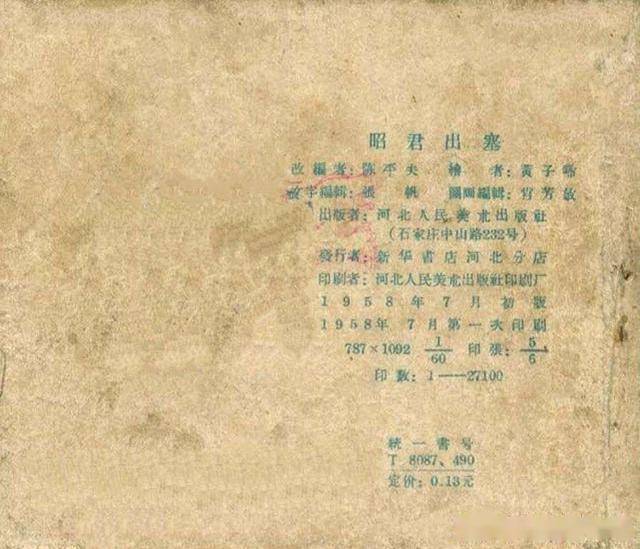 昭君出塞
改編者：陈平夫 繪者：黄子希
文字編輯：張帆 圖画編輯：肖芳啟
出版者：河北人民美朮出版社
（石家庄中山路232号）
發行者：新华書店河北分店
印刷者：河北人民美朮出版社印刷厂
1958年7月初版
1958年7月第一次印刷
787×1092 1/60 印張：5/6
印数：1——27100
統一書号
T 8087、490
定价：0.13元